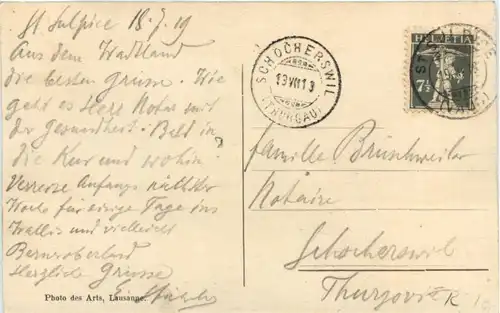 St Sulpice 18.7.19
Aus dem Wadtland
die besten Grüsse. Wie
geht es Herr Notar mit
der Gesundheit. Bald in
die Kur und wohin.
Verreise Anfangs nächster
Woche für einige Tage ins
Wallis und vielleicht
Berneroberland
Herzliche Grüsse
Photo des Arts, Lausanne.
SCHOCHERSWIL
(THURGAU)
HELVETIA
7½
Familie Brüschweiler
Notaire
Schocherswil
Thurgovie